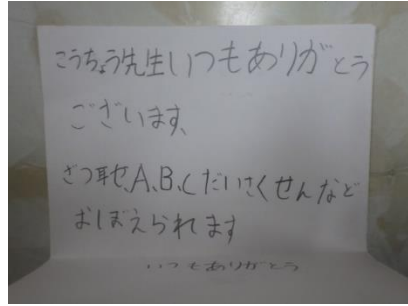 こうちょう先生いつもありがとう
ございます、
ざつ耳せ、A、B、C だいさくせんなど
おぼえられます
いつもありがとう